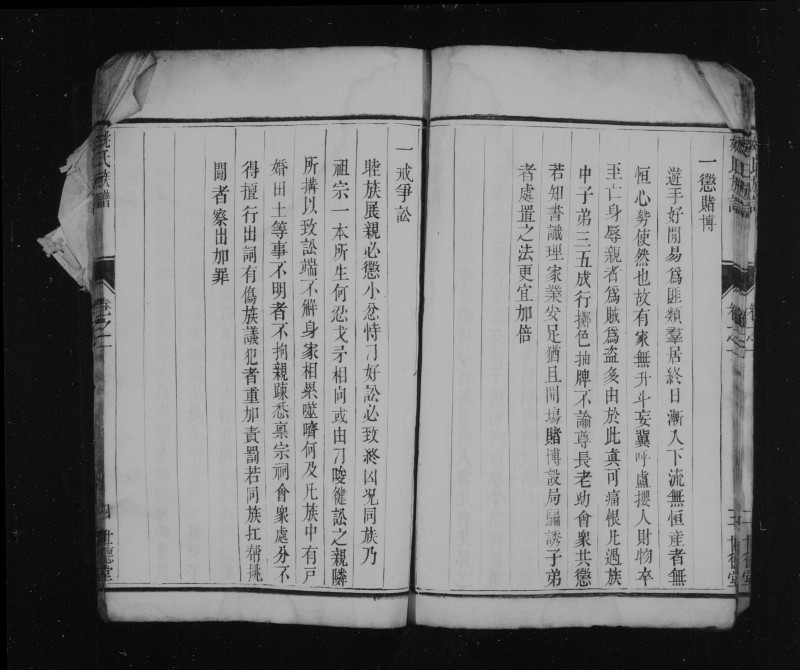 一懲賭博
遊手好閒易爲匪類羣居終日漸入下流無恒産者無
恒心勢使然也故有家無升斗妄冀呼盧攖人財物卒
至亡身辱親者爲賊爲盗多由於此真可痛恨凡遇族
中子弟三五成行擲色抽牌不論尊長老幼會衆共懲
若知書識理家業安足猶且開塲賭博設局騙誘子弟
者處置之法更宜加倍
一戒爭訟
睦族展親必懲小忿恃刁好訟必致終凶况同族乃
祖宗一本所生何忍戈矛相向或由刁唆健訟之親隣
所搆以致訟端不解身家相累噬嚌何及凡族中有戸
婚田土等事不明者不拘親疎悉稟宗祠會衆處分不
得擅行出詞有傷族議犯者重加責罰若同族扛帮挑
鬪者察出加罪
姚氏族譜
卷之一
四
世德堂